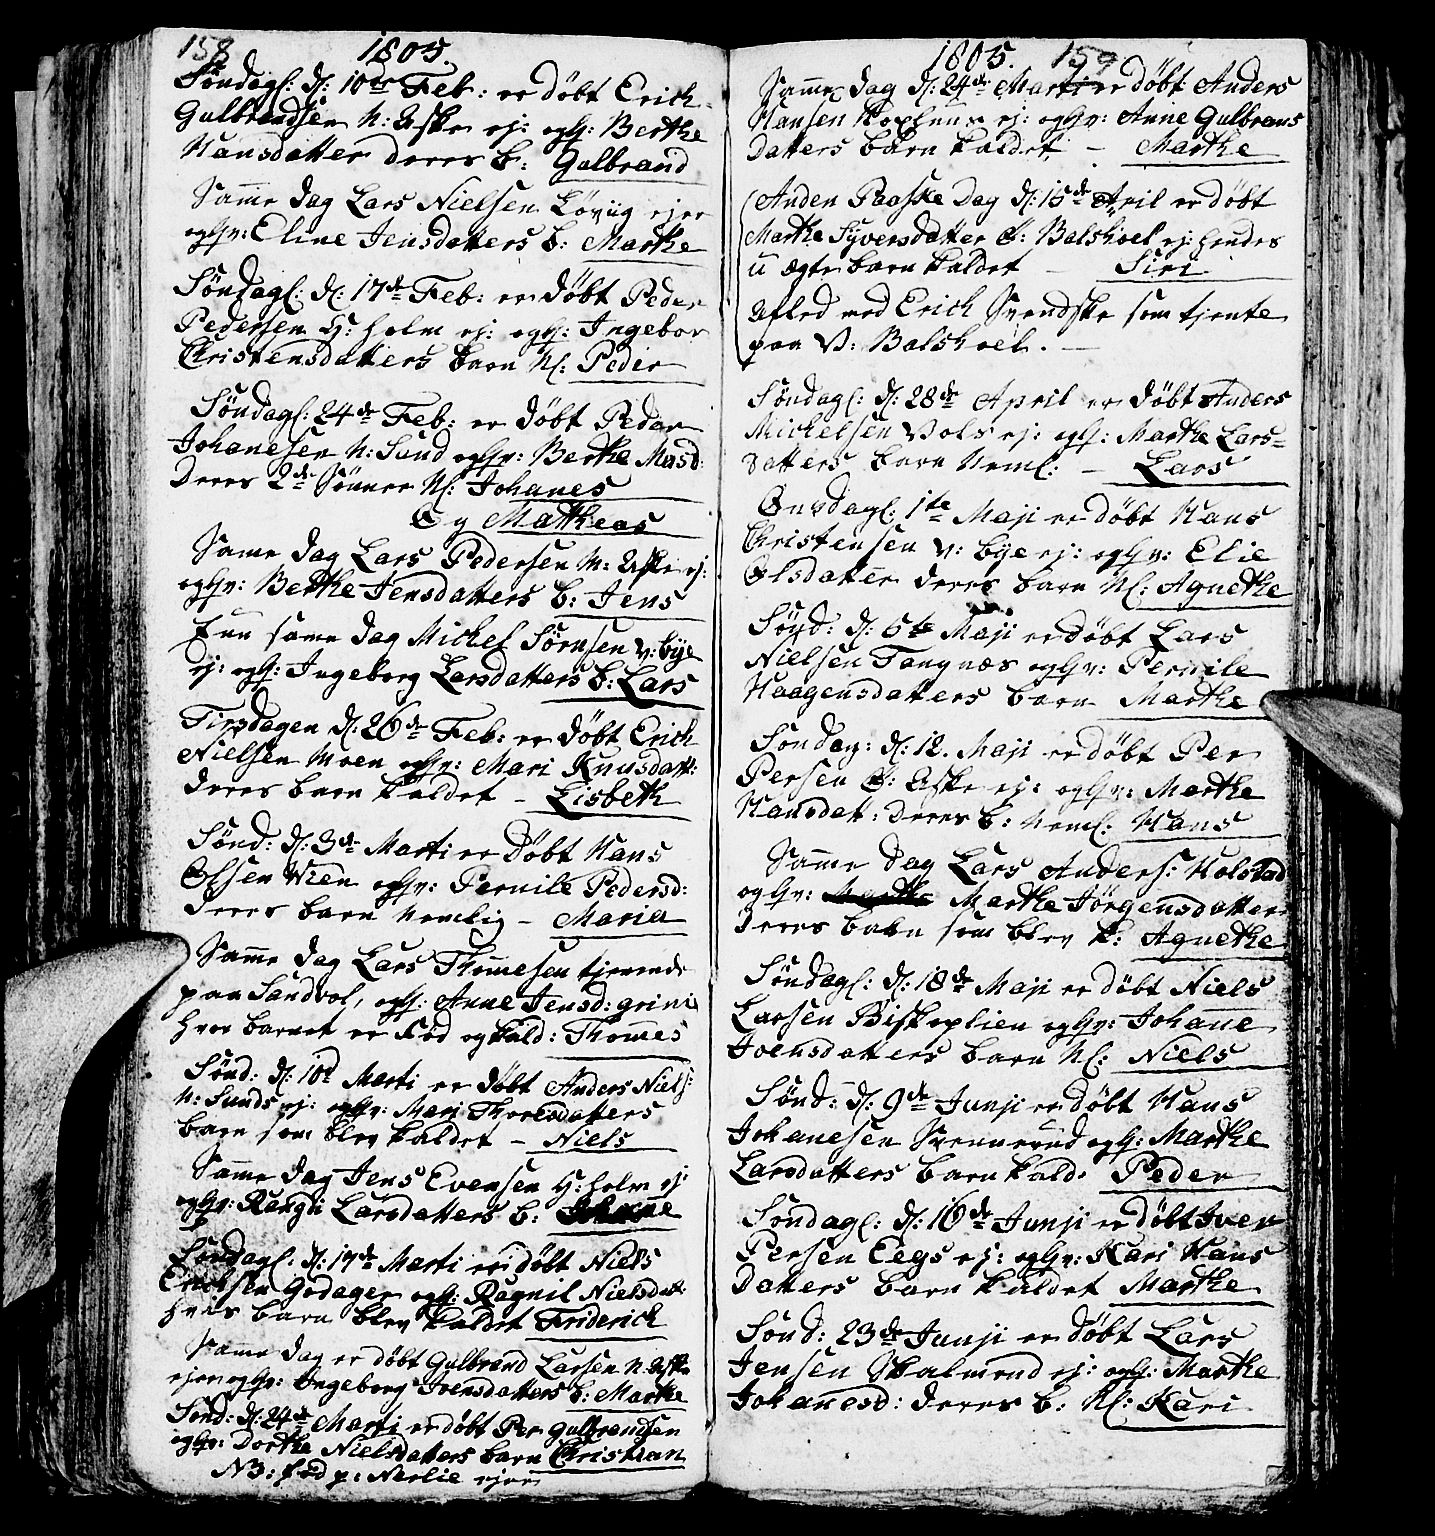 158 1805.
Søndagl: d: 10de Feb: er døbt Erich
Gulbrandsen N: Aske ej: oghs: Berthe
Hansdatter deres b: Gulbrand
Samme dag Lars Nielsen Løviig ejer
oghv: Eline Jensdatters b: Marthe
Søndagl: d: 17de Feb: er døbt Peder
Pedersen H: holm ej: oghs: Ingebor
Christensdatters barn Nl: Peder
Søndagl: 24de Feb: er døbt Peder
Johanesen N: Sund oghv: Berthe Masd:
deres 2de Sønner Nl: Johanes
Og Mattheas
Same dag Lars Pedersen N: Aske ej:
oghv: Berthe Jensdatters b: Jens
Enn same dag Michel Sørnsen v: bye
ej: oghs: Ingeborg Larsdatters b: Lars
Tirsdagen d: 26de Feb: er døbt Erich
Nielsen Moen oghv: Mari Knusdatt:
deres barn kaldet – Lisbeth
Sønd: d: 3de Marti er døbt Hans
Olsen Wien oghv: Pernile Pedersd:
deres barn nemlig – Maria
Samme dag Lars Thomesen tjenende
paa Sandvol, oghs: Anne Jensd: grini
hvor barnet er Fød og kald: Thomes
Sønd: d: 10d Marti er døbt Anders Niels:
N: Sunds ej: oghv: Mari Thoresdatters
barn som blev kaldet – Niels
Samme dag Jens Evensen H: holm ej:
oghv: Rangn Larsdatters b: Johane
Søndagl: d: 17de Marti er døbt Niels
Erichsen Godager oghs: Ragnil Nielsdat:
hvis barn blev kaldet Friderich
Samme dag er døbt Gulbrand Larsen N: Aske
ejer oghv: Ingeborg Joensdatters b: Marthe
Sønd: d: 24de Marti er døbt Per Gulbrandsen
oghv: Dorthe Nielsdatters barn Christian
NB: fød p: Nerlie ejer
1805. 159
Samme dag d: 24de Marti er døbt Anders
Hansen Hoplous ej: oghv: Anne Gulbrans
datters barn kaldet – Marthe
Anden Paaske Dag d: 15de April er døbt
Marthe Syversdatter Ø: Balshoel ej: hendes
uægte barn kaldet – Siri
Afled med Erich Svendske som tjente
paa V: Balshoel. –
Søndagl: d: 28de April er døbt Anders
Michelsen Vols ej: oghs: Marthe Lars-
datters barn neml: – Lars
Onsdagl: 1te Maji er døbt Hans
Christensen v: bye ej: oghv: Elie
Olsdatter deres barn Nl: Agnethe
Sønd: d: 5te Maji er døbt Lars
Nielsen Tangnæs oghv: Pernile
Haagensdatters barn Marthe
Søndag: d: 12. Maji er døbt Per
Persen Ø: Aske ej: oghv: Marthe
Hansdatt: deres b: neml: Hans
Samme dag Lars Anders: Holstad
oghv: Marthe Jørgensdatter
deres babn som blev k: Agnethe
Søndagl: d: 18de Maji er døbt Niels
Larsen Biskoplien oghv: Johane
Joensdatters barn Nl: Niels
Sønd: d: 9de Junji er døbt Hans
Johanesen Svennerud oghs: Marthe
Larsdatters barn kald: Peder
Søndagl: d: 16de Junji er døbt Iver
Persen Eegs ej: oghv: Kari Hans
datters barn kaldet Marthe
Sønd: 23de Junji er døbt Lars
Jensen Skalmerud ej: oghs: Marthe
Johanesd: deres b. Nl: Kari